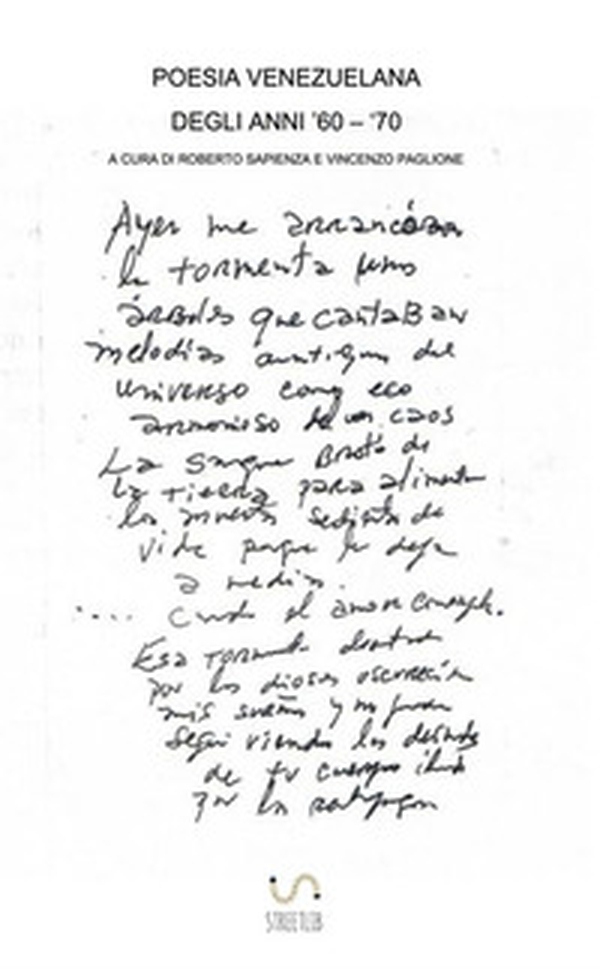 POESIA VENEZUELANA
DEGLI ANNI '60 – '70
A CURA DI ROBERTO SAPIENZA E VINCENZO PAGLIONE
Ayer me arrancó
la tormenta unos
árboles que cantaBan
melodías del
universo como eco
armonioso de un caos
La sangre Brotó de
la tierra para alimentar
los sedienta de
vida porque la deja
a medias.
.... cuando el amor
Esa Tormenta
por los dioses oscurecía
mis sueños y no puedo
seguir viendo los
de tu cuerpo
por la
STREETLIB